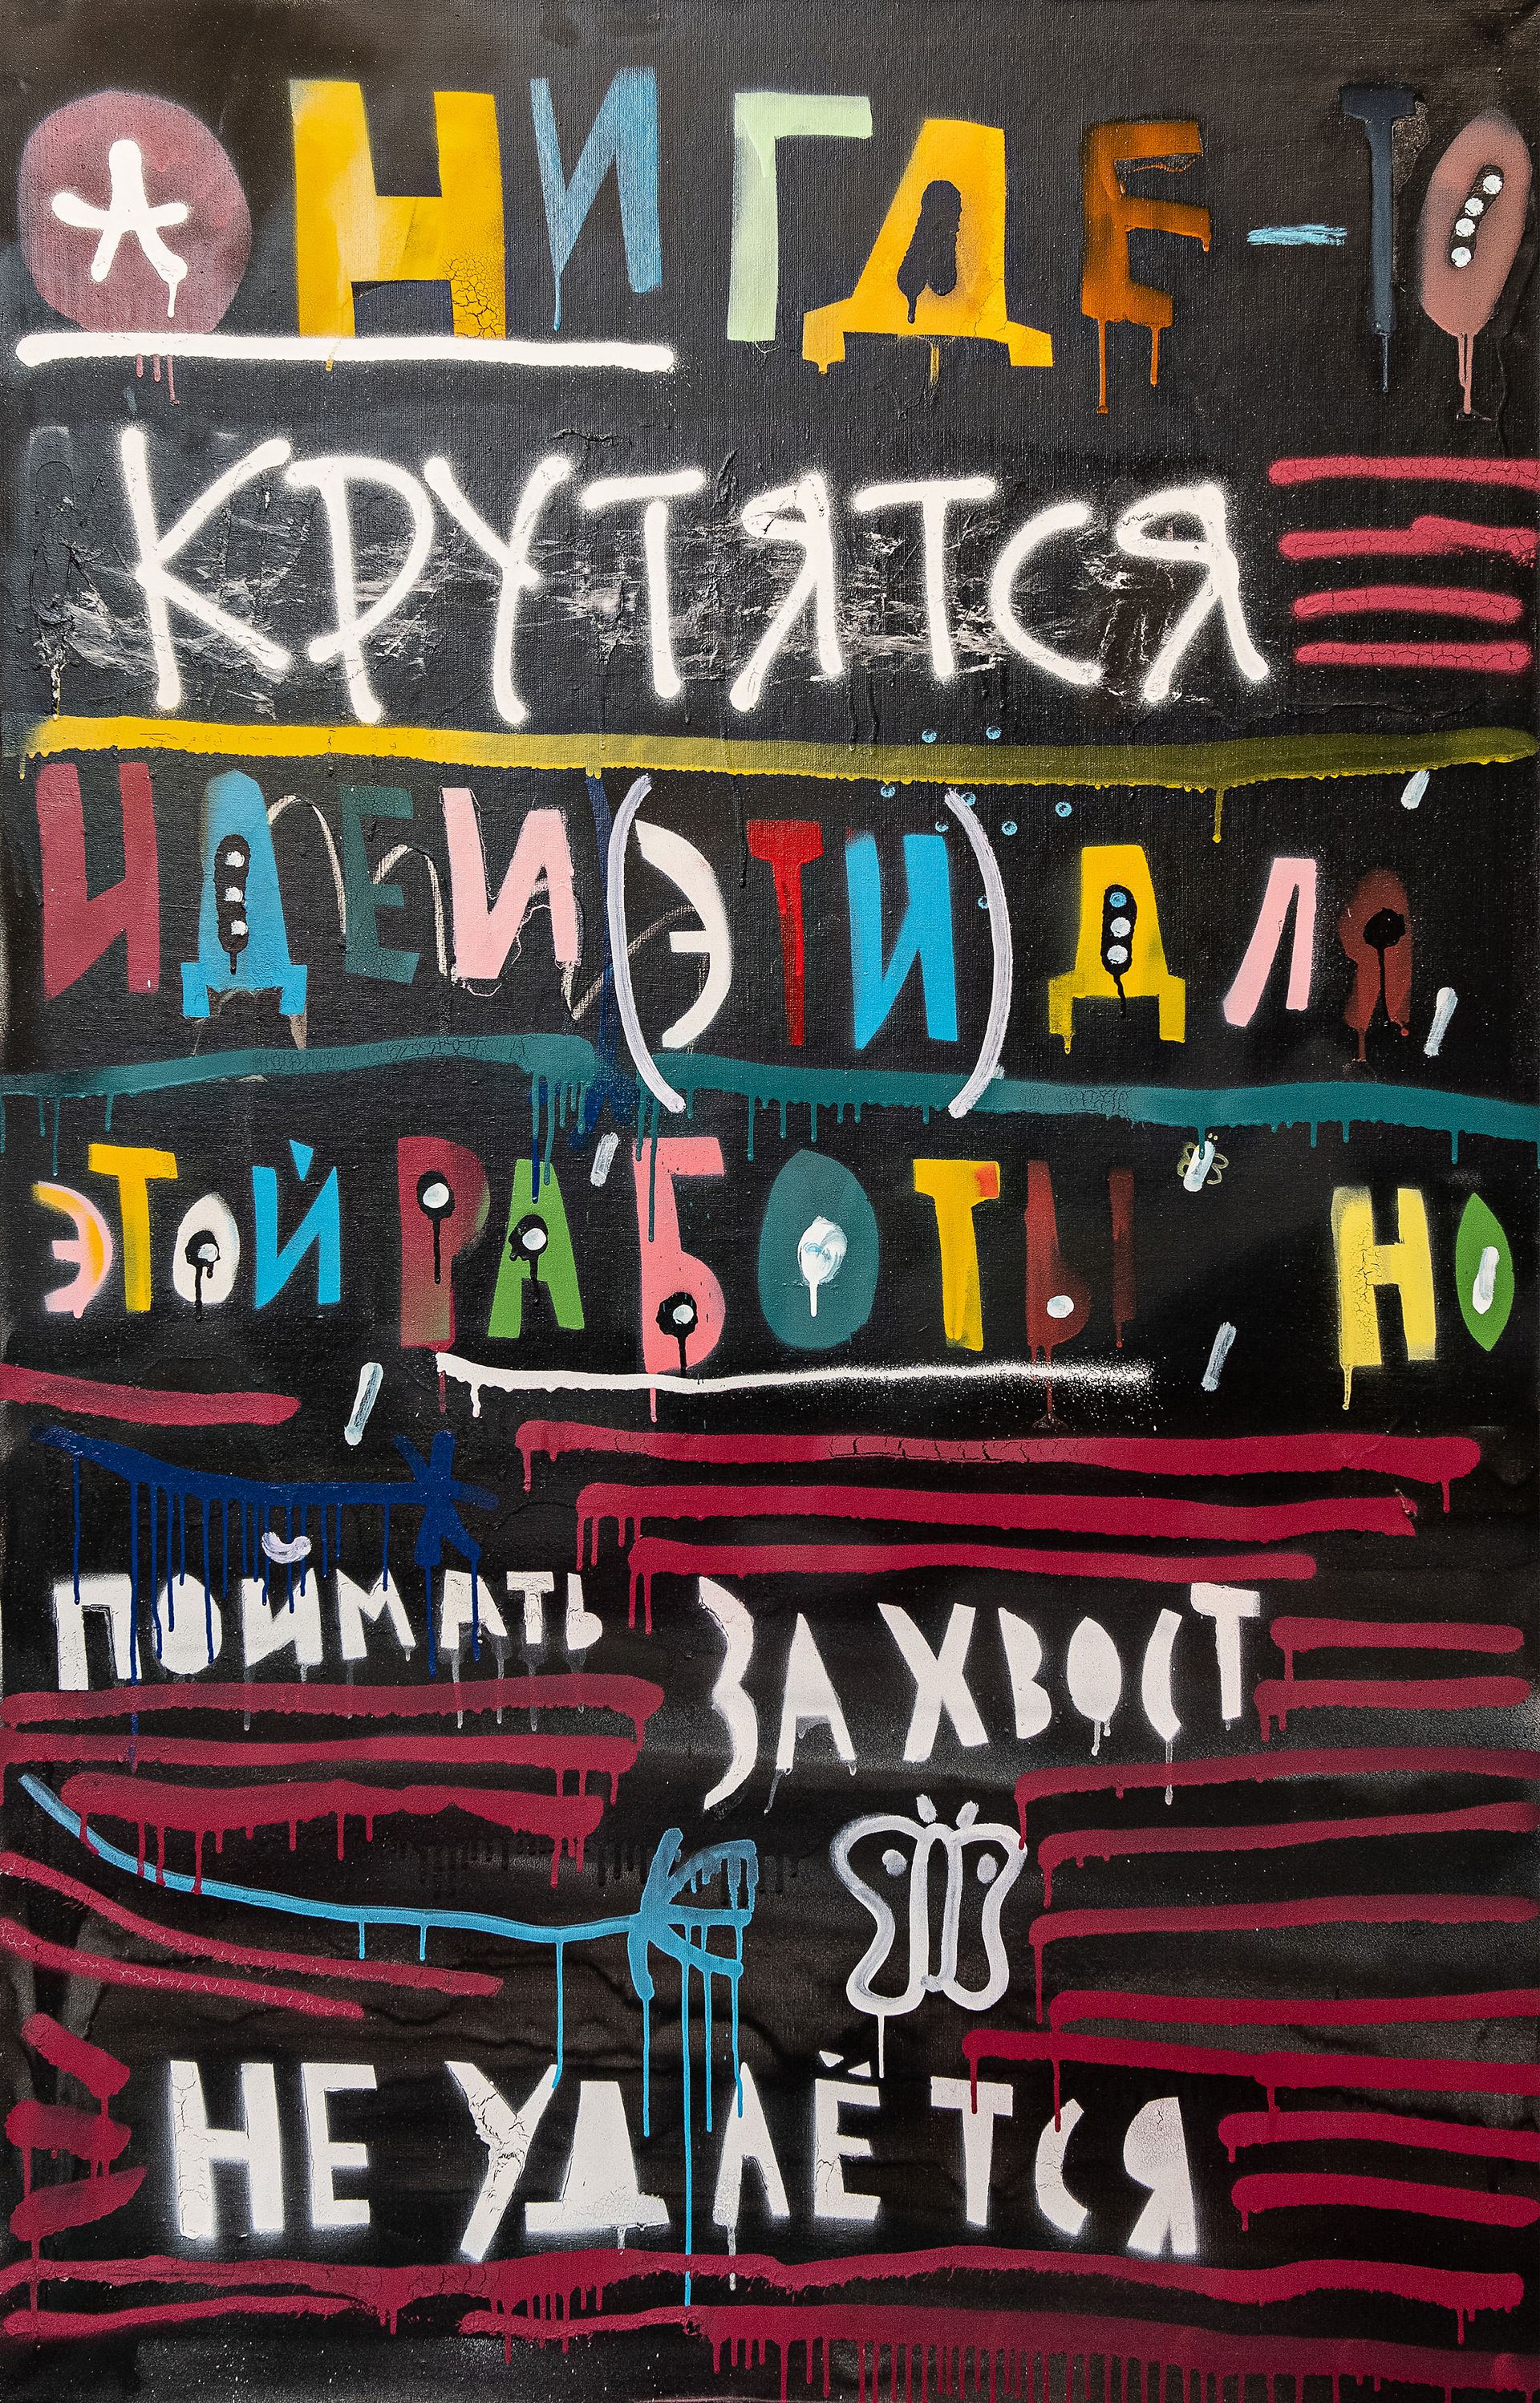 ОНИ ГДЕ-ТО
КРУТЯТСЯ
ИДЕИ (ЭТИ) ДЛЯ,
ЭТОЙ РАБОТЫ, НО
ПОЙМАТЬ ЗА ХВОСТ
НЕ УДАЁТСЯ